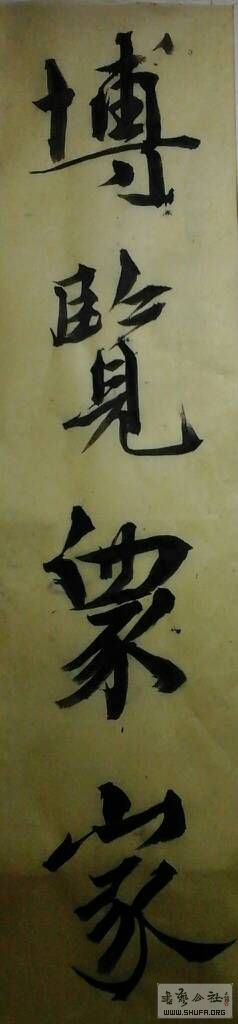 博覽眾家
書藝公社
WWW.SHUFA.ORG